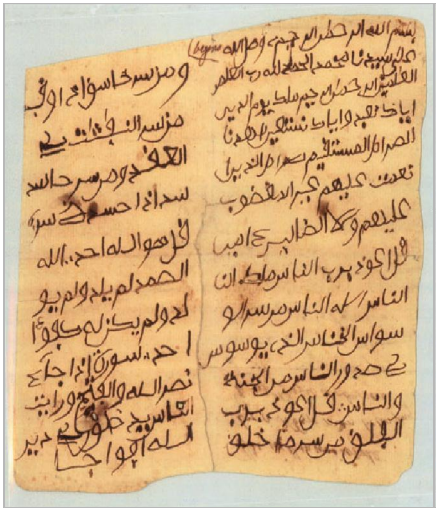 بسم الله الرحمن الرحيم وصل الله
على سيدنا محمد الحمد لله رب العلم
العلمين الرحمن الرحيم ملك يوم الدين
اياك نعبد واياك نستعين اهدنا
الصراط المستقيم صراط الذين
نعمت عليهم غير المغضوب
عليهم ولا الضالين امين
قل اعوذ برب الناس ملك النا
الناس اله الناس من شر الو
سواس الخناس الذي يوسوس
في صدور الناس من الجنة
والناس قل اعوذ برب
الفلق من شر ما خلق
ومن شر غاسق اذا وقب
من شر النفثت في
العقد ومن شر حاسد
سد اذا حسد
قل هو الله احد الله
الصمد لم يلد ولم يو
لد ولم يكن له كفوا
احد سورة اذا جاء
نصر الله والفتح ورايت
الناس يدخلون في دين
الله افواجا